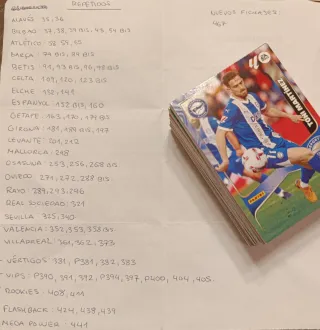 REPETIDOS
ALAVÉS 31, 36
BILBAO 37, 38, 39 BIS, 43, 49 BIS
ATLÉTICO: 58, 59, 65
BARÇA: 79 BIS
BETIS: 91, 93 BIS, 96, 98 BIS
CELTA: 109, 120, 123 BIS
ELCHE: 132, 141
ESPANYOL: 152 BIS, 160
GETAFE: 163, 170, 175 BIS
GIRONA: 181, 188 BIS, 197
LEVANTE: 201, 212
MALLORCA: 218
OSASUNA: 253, 256, 268 BIS
OVIEDO: 271, 272, 288 BIS
RAYO: 289, 293, 296
REAL SOCIEDAD: 321
SEVILLA: 325, 340
VALENCIA: 352, 353, 358 BIS
VILLARREAL: 361, 362, 373
- VÉRTIGOS: 381, P381, 382, 383
- VIPS: P390, 391, 392, P394, 397, P400, 404, 405
- ROOKIES: 408, 411
FLASHBACK: 424, 438, 439
MEGA POWER: 441
NUEVOS FICHAJES:
467
TONI MARTÍNEZ
PANINI